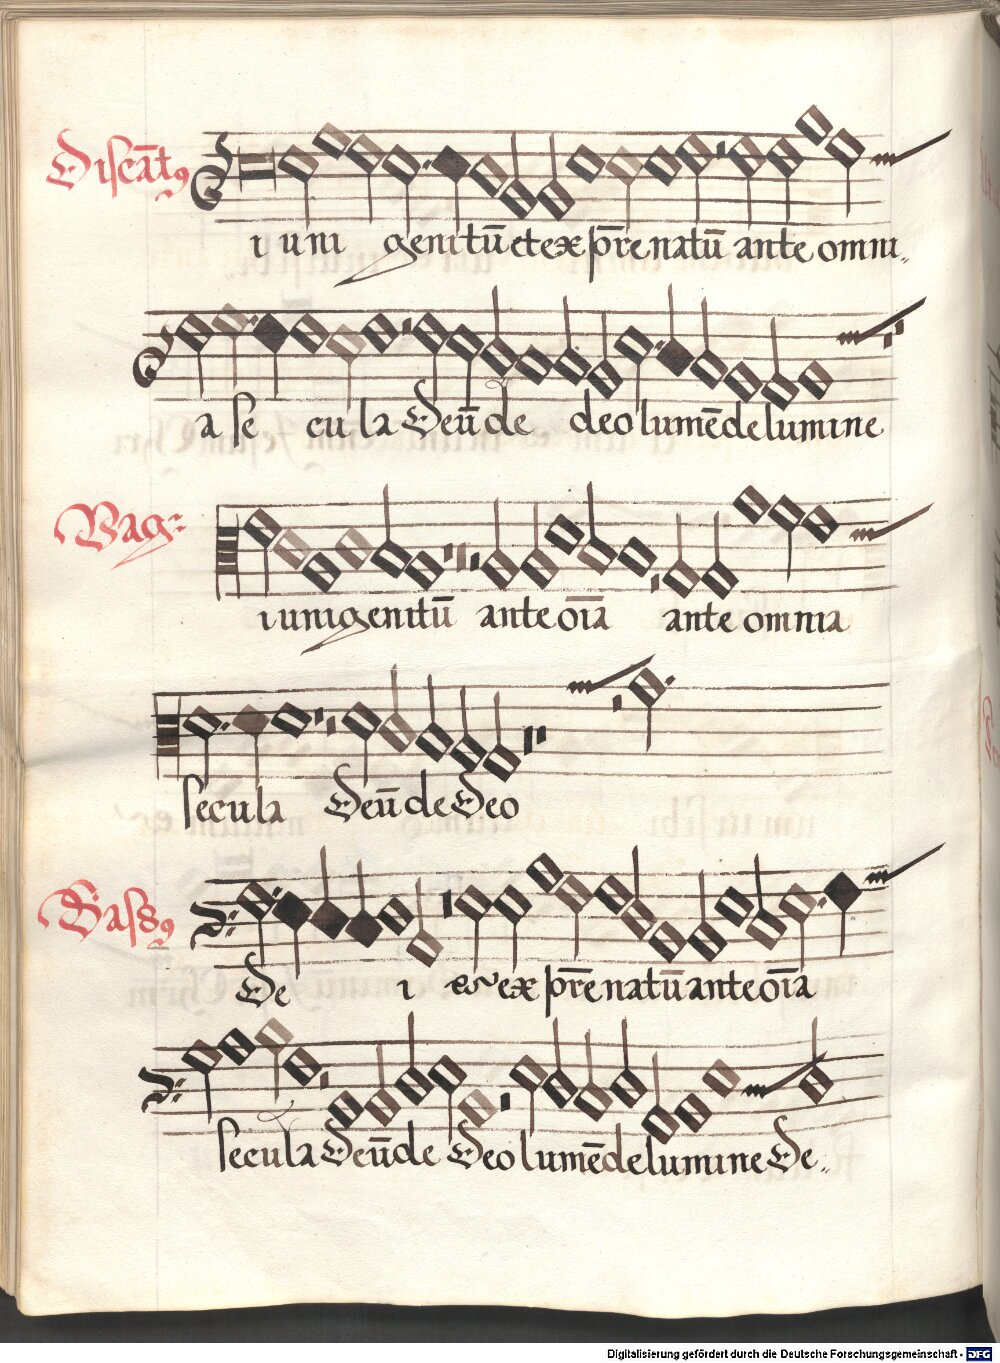 Discāt9
i uni genitū et ex p̄re natū ante omni„
a se cu la Deū de deo lumē de lumine
Vag:
i unigenitū ante oīa ante omnia
secula Deū de Deo
Bass9
De i et ex p̄re natū ante oīa
secula Deū de Deo lumē de lumine De„
Digitalisierung gefördert durch die Deutsche Forschungsgemeinschaft - DFG